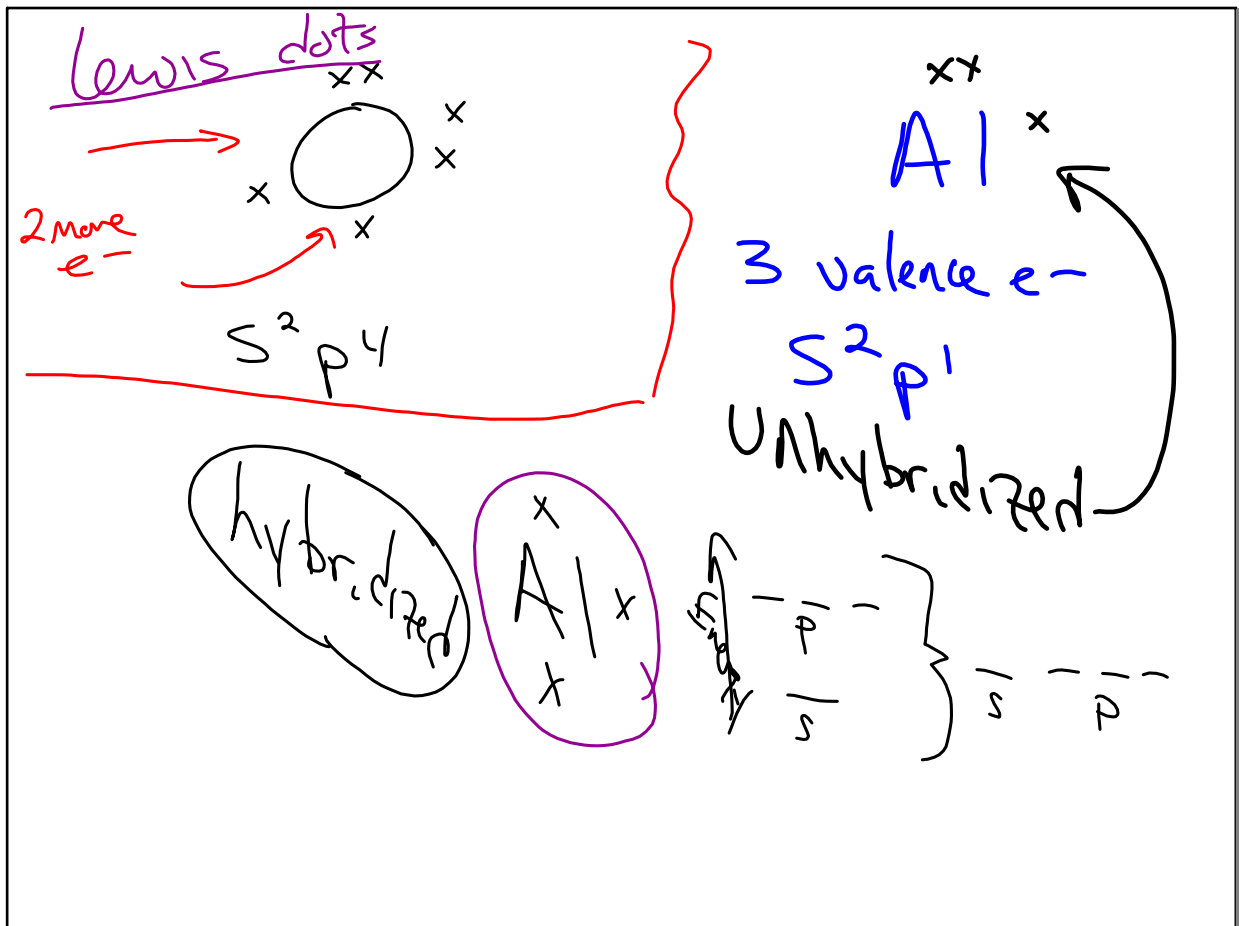 Lewis dots
xx
x
x
x
x
2 more
e-
s² p⁴
xx
Al x
3 valence e-
s² p¹
Unhybridized
hybridized
x
Al x
x
energy
p
s
s p